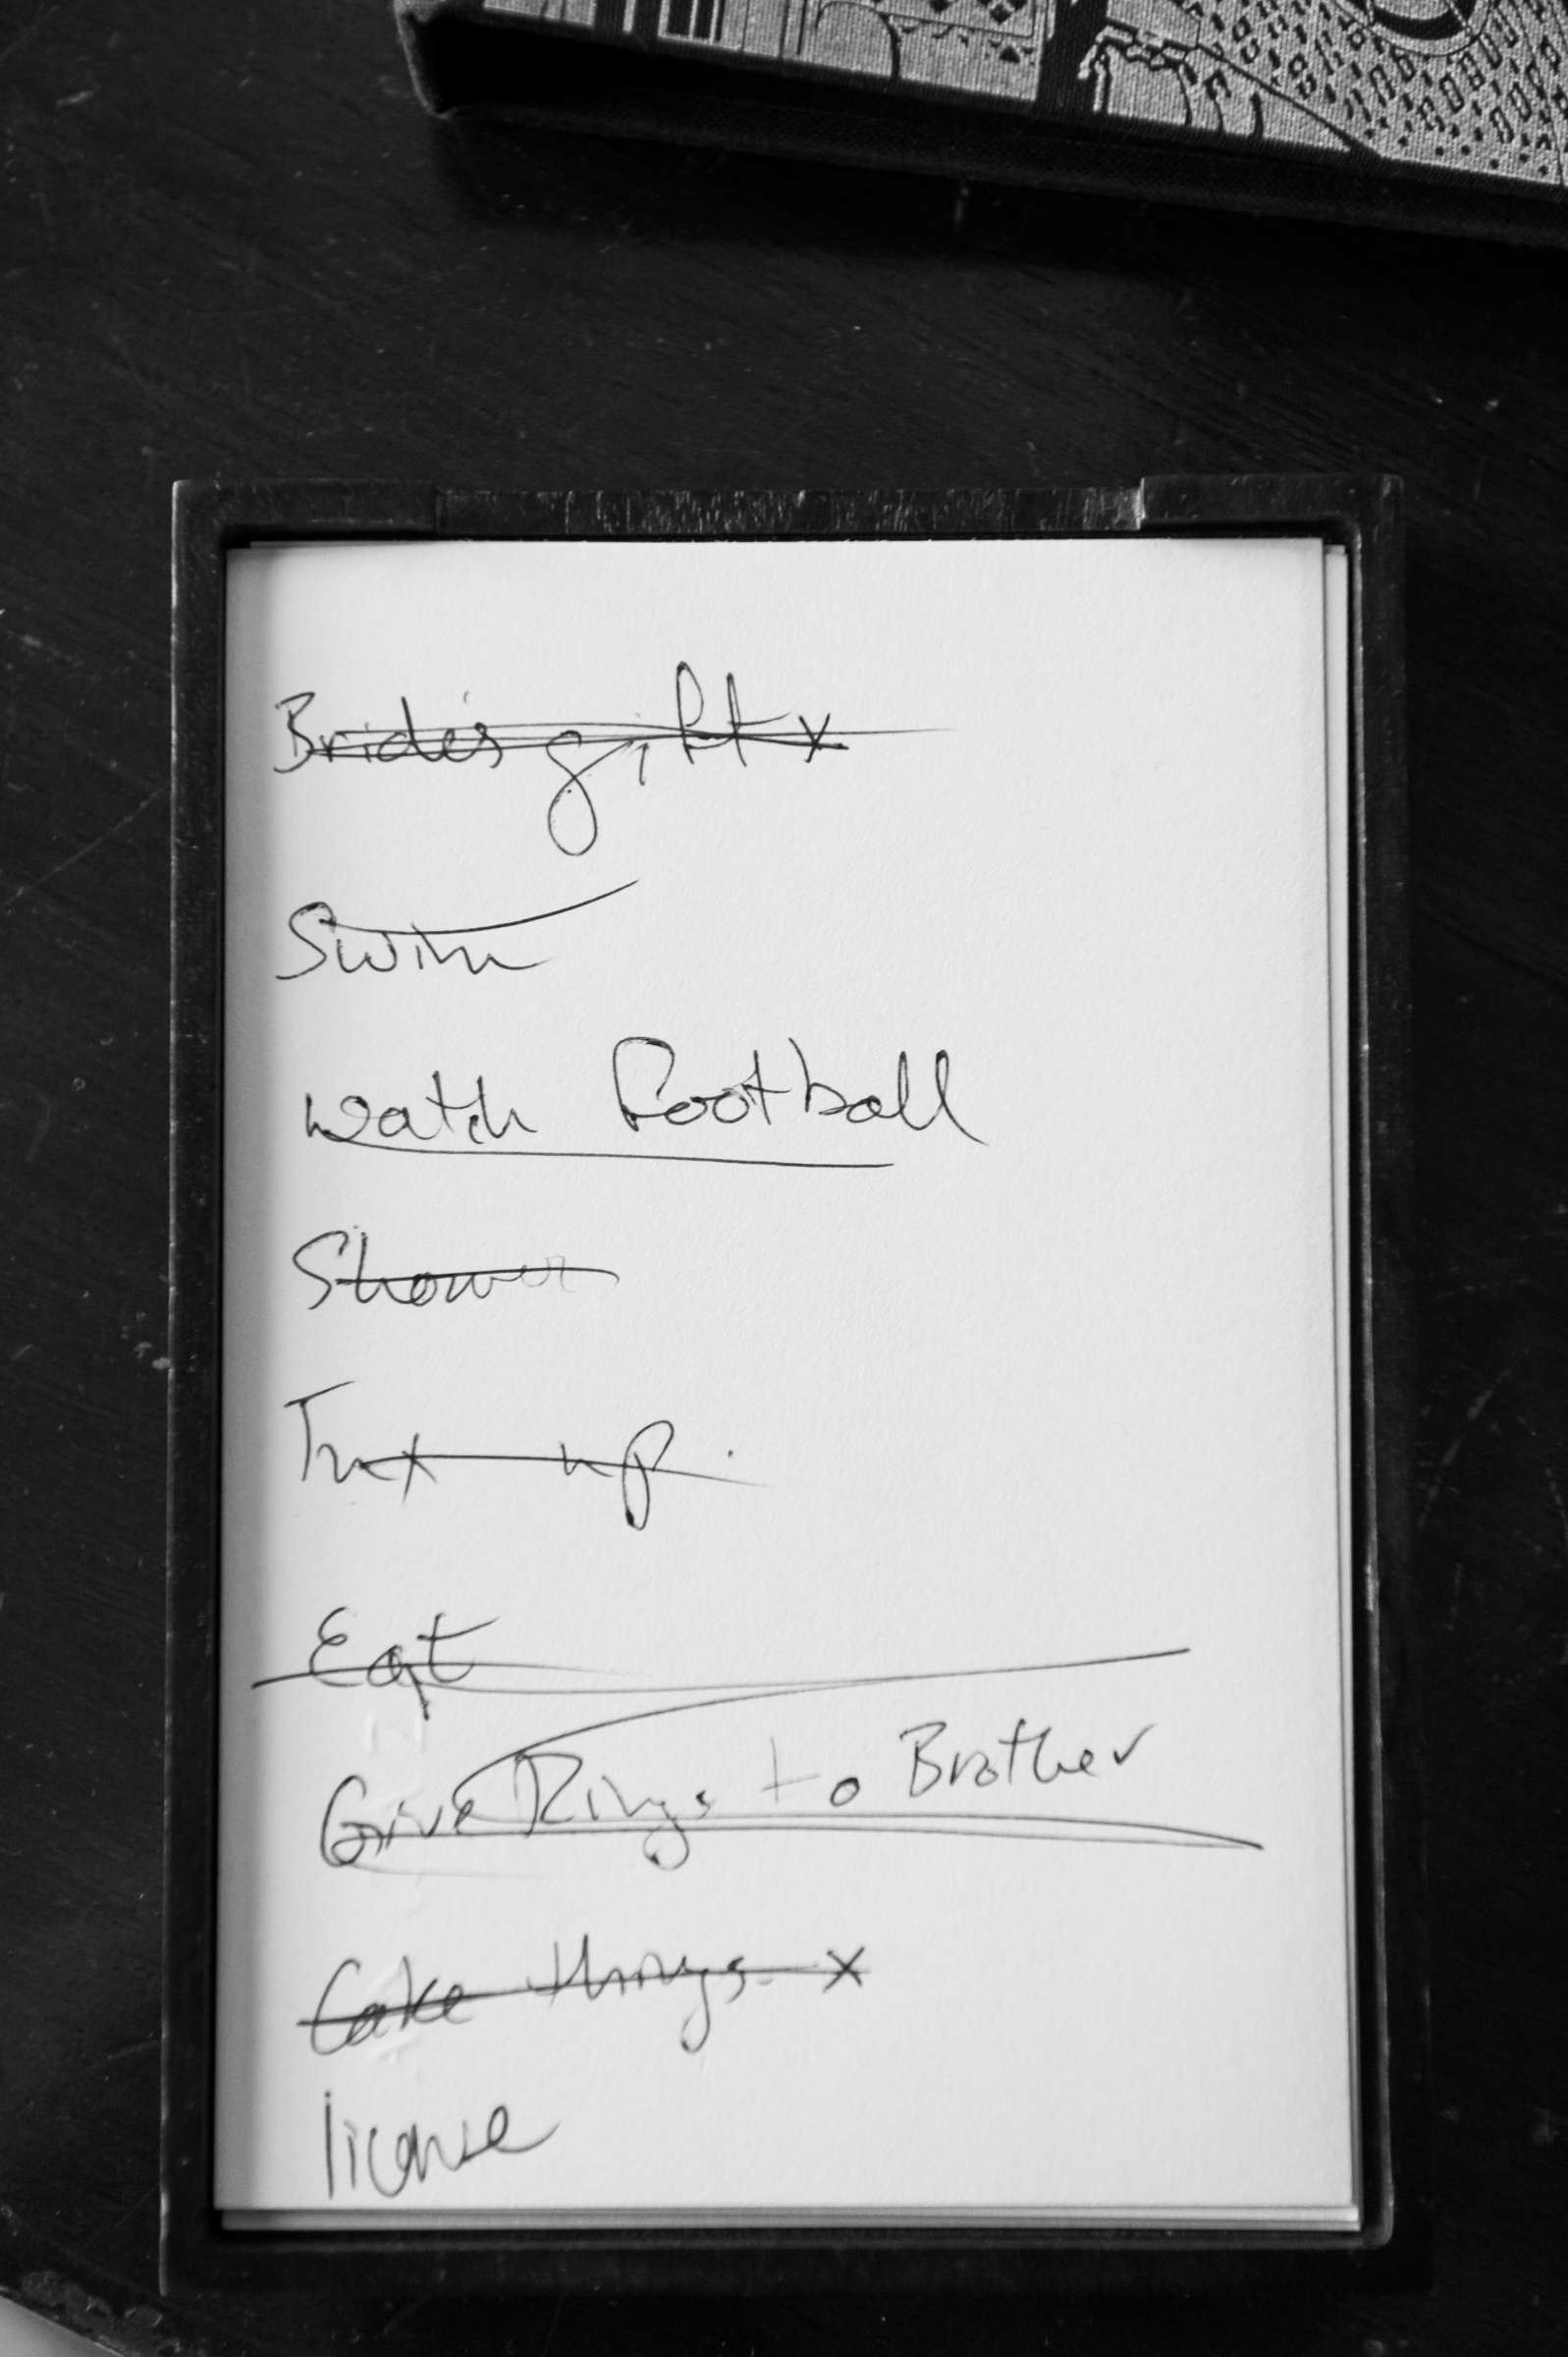 Bride's gift x
Swim
watch football
Shower
Tux up.
Eat
Give Rings to Brother
Cake things x
license